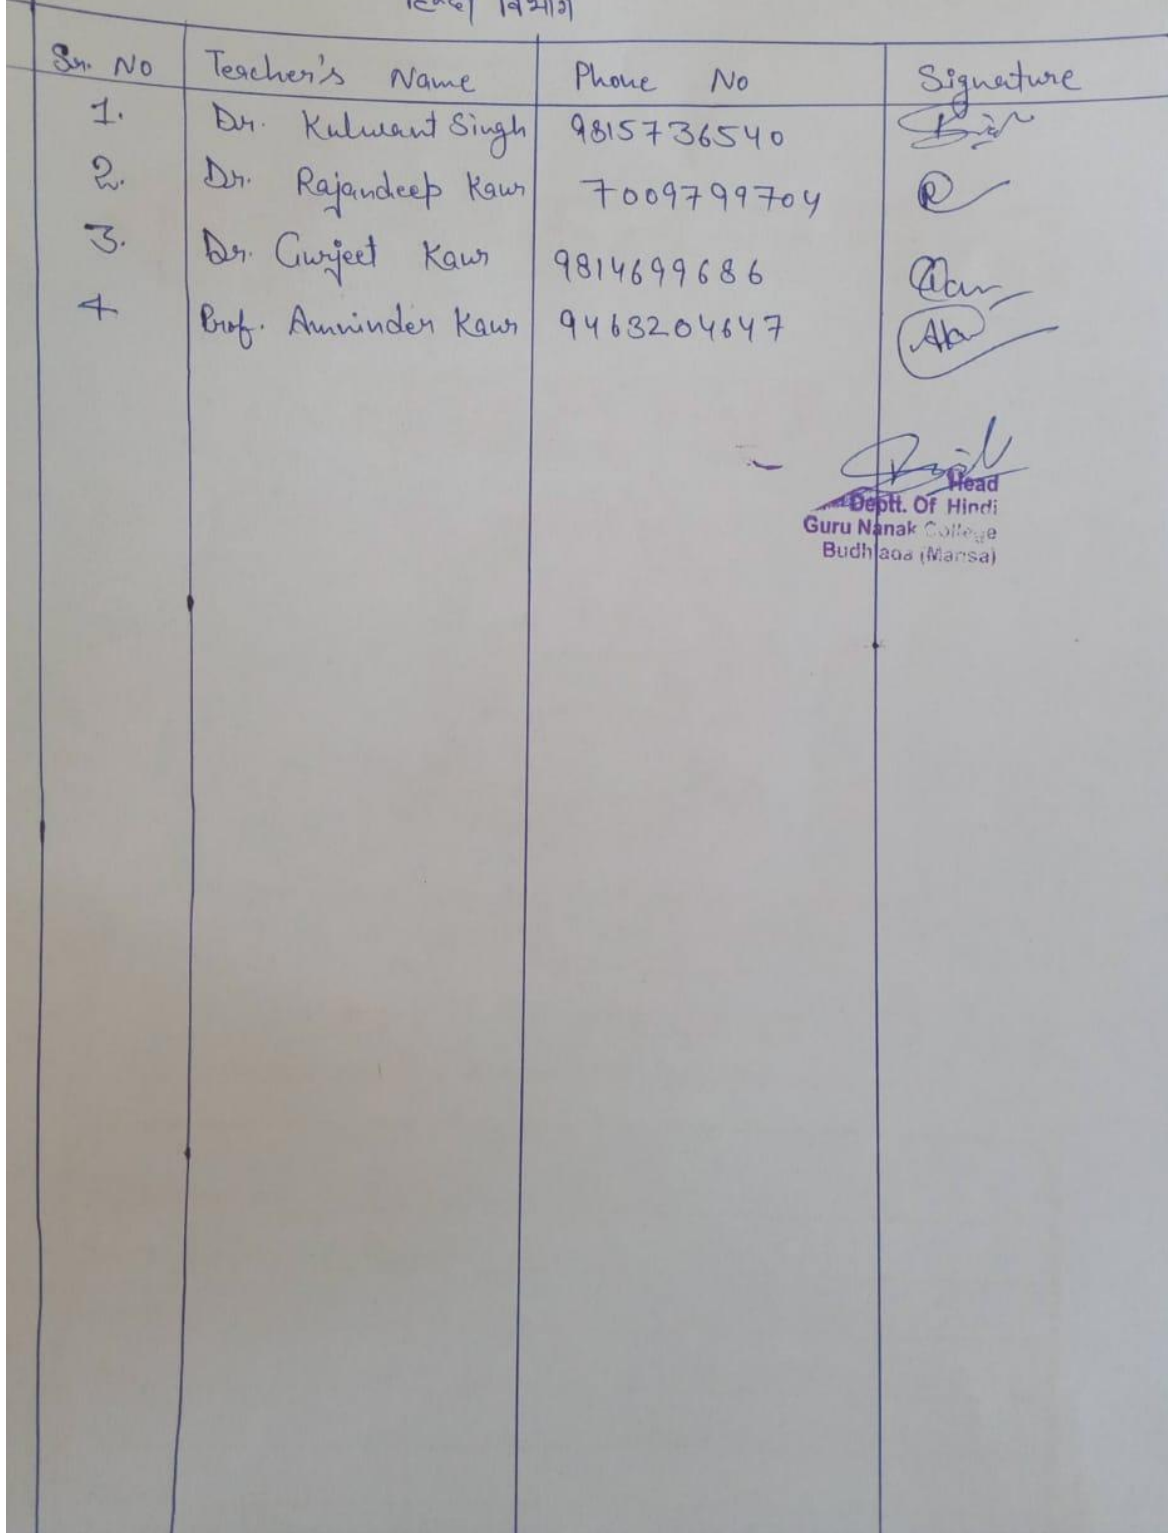 हिन्दी विभाग
Sr. No Teacher's Name Phone No Signature
1. Dr. Kulwant Singh 9815736540
2. Dr. Rajandeep Kaur 7009799704
3. Dr. Gurjeet Kaur 9814699686
4 Prof. Amninder Kaur 9463204647
Head
Deptt. Of Hindi
Guru Nanak College
Budhlada (Mansa)